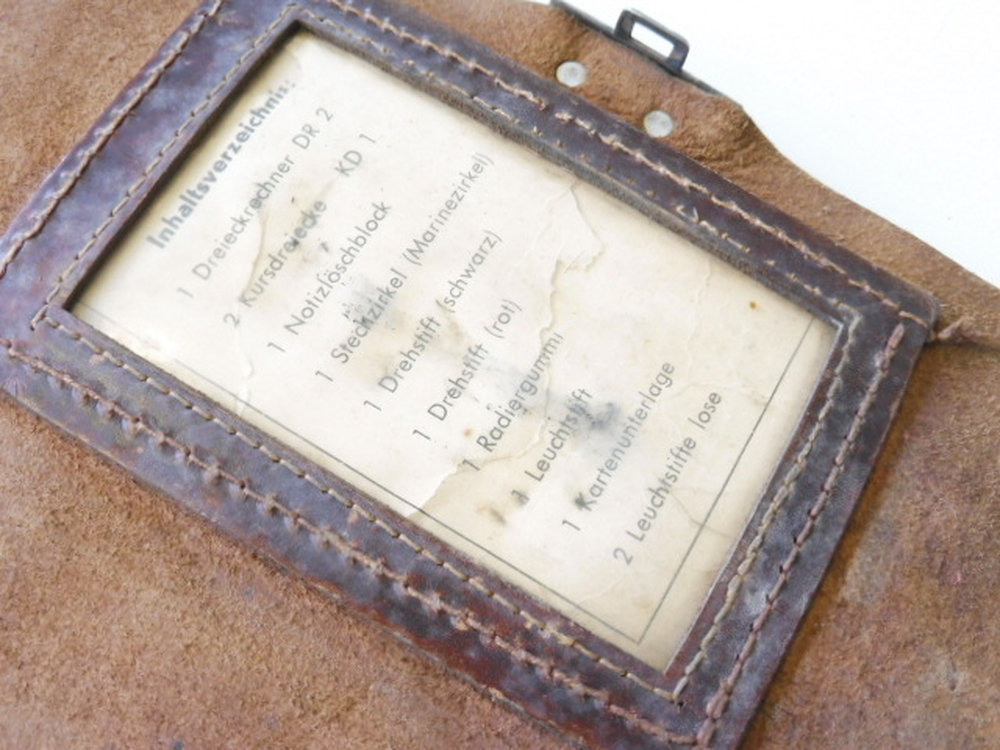 Inhaltsverzeichnis:
1 Dreieckrechner DR 2
2 Kursdreiecke KD 1
1 Notizlöschblock
1 Stechzirkel (Marinezirkel)
1 Drehstift (schwarz)
1 Drehstift (rot)
1 Radiergummi
1 Leuchtstift
1 Kartenunterlage
2 Leuchtstifte lose